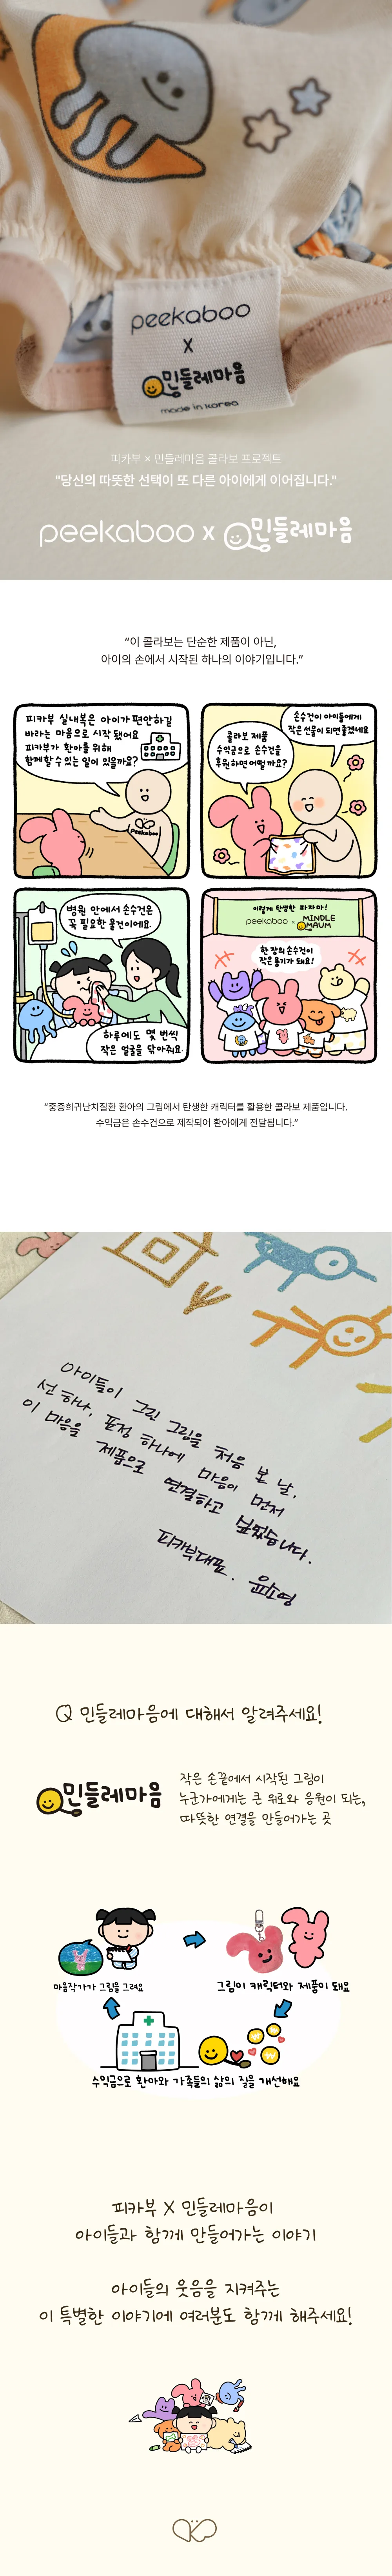 peekaboo
X
민들레마음
made in korea
피카부 × 민들레마음 콜라보 프로젝트
"당신의 따뜻한 선택이 또 다른 아이에게 이어집니다."
peekaboo x 민들레마음
“이 콜라보는 단순한 제품이 아닌,
아이의 손에서 시작된 하나의 이야기입니다.”
피카부 실내복은 아이가 편안하길
바라는 마음으로 시작 됐어요
피카부가 환아를 위해
함께할 수 있는 일이 있을까요?
Peekaboo
손수건이 아이들에게
작은 선물이 되면 좋겠네요
콜라보 제품
수익금으로 손수건을
후원하면 어떨까요?
병원 안에서 손수건은
꼭 필요한 물건이에요.
하루에도 몇 번씩
작은 얼굴을 닦아줘요
이렇게 탄생한 파자마!
peekaboo × MINDLE MAUM
한 장의 손수건이
작은 용기가 돼요!
“중증희귀난치질환 환아의 그림에서 탄생한 캐릭터를 활용한 콜라보 제품입니다.
수익금은 손수건으로 제작되어 환아에게 전달됩니다.”
아이들이 그린 그림을 처음 본 날,
선 하나, 표정 하나에 마음이 먼저
이 마음을 제품으로 연결하고 싶었습니다.
피카부대표. 윤소영
Q 민들레마음에 대해서 알려주세요!
민들레마음
작은 손끝에서 시작된 그림이
누군가에게는 큰 위로와 응원이 되는,
따뜻한 연결을 만들어가는 곳
마음작가가 그림을 그려요
그림이 캐릭터와 제품이 돼요
수익금으로 환아와 가족들의 삶의 질을 개선해요
피카부 X 민들레마음이
아이들과 함께 만들어가는 이야기
아이들의 웃음을 지켜주는
이 특별한 이야기에 여러분도 함께 해주세요!